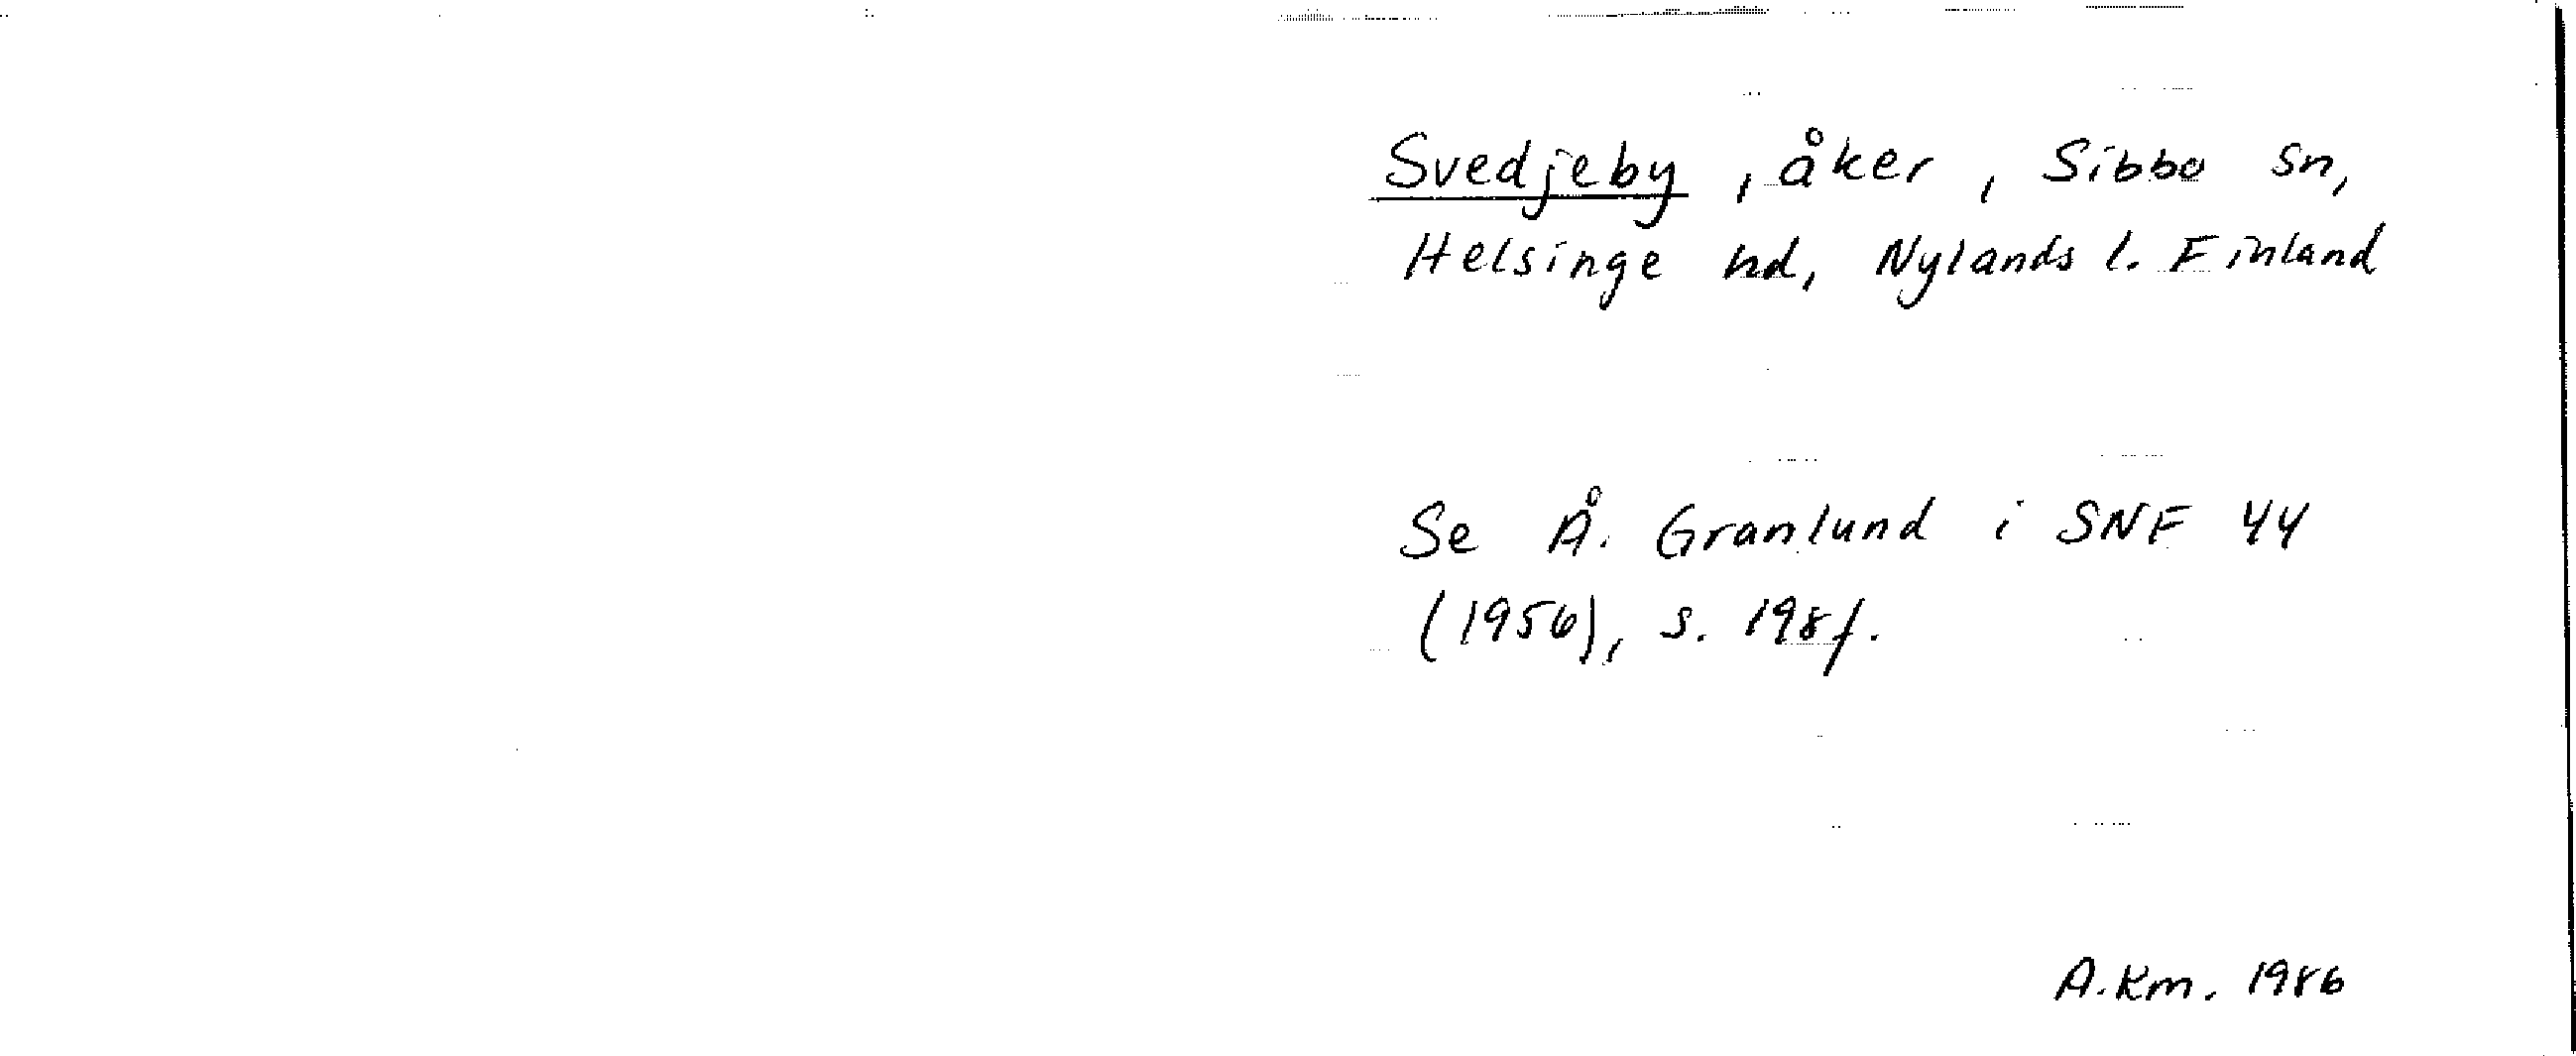 Svedjeby, åker, Sibbo sn,
Helsinge hd, Nylands l. Finland
Se Å. Granlund i SNF 44
(1956), s. 198f.
A.Km. 1986